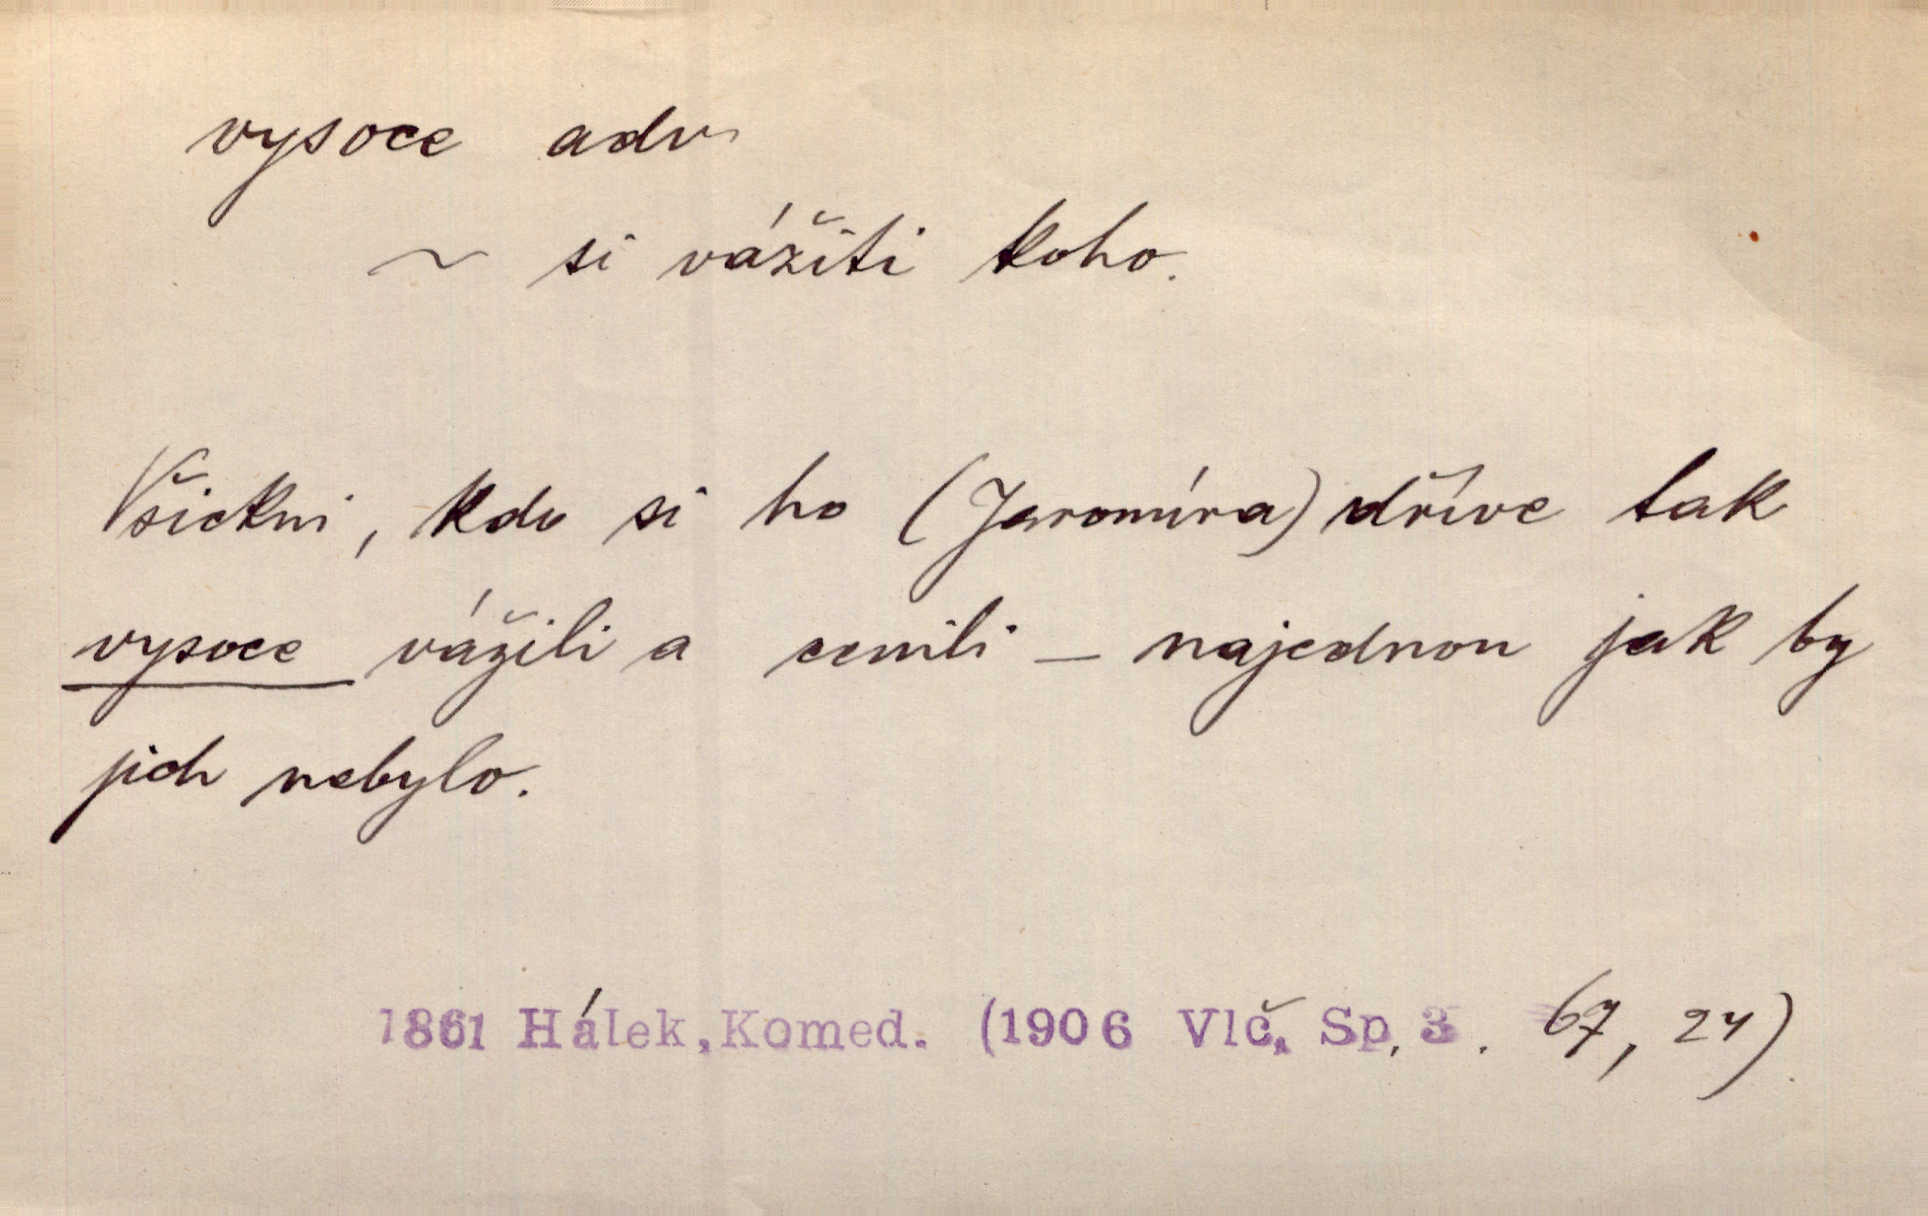 vysoce adv.
~ si vážiti koho.
Všickni, kdo si ho (Jaromíra) dříve tak
vysoce vážili a cenili — najednou jak by
jich nebylo.
1861 Hálek, Komed. (1906 Vlč. Sp. 3. 67, 24)